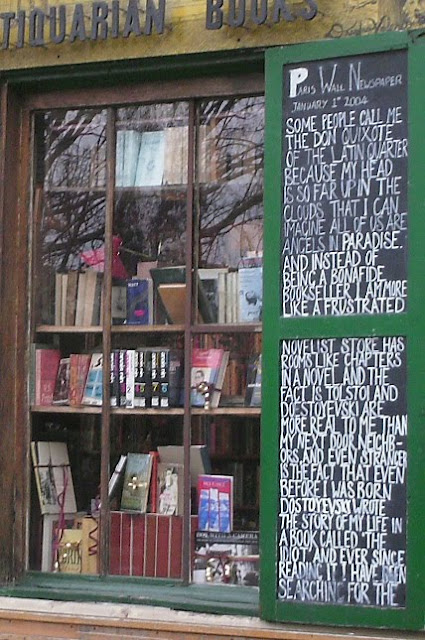 TIQUARIAN BOOKS
PARIS WALL NEWSPAPER
JANUARY 1ST 2004
SOME PEOPLE CALL ME
THE DON QUIXOTE
OF THE LATIN QUARTER
BECAUSE MY HEAD
IS SO FAR UP IN THE
CLOUDS THAT I CAN
IMAGINE ALL OF US ARE
ANGELS IN PARADISE.
AND INSTEAD OF
BEING A BONAFIDE
BOOKSELLER I AM MORE
LIKE A FRUSTRATED
NOVELIST STORE HAS
ROOMS LIKE CHAPTERS
IN A NOVEL AND THE
FACT IS TOLSTOI AND
DOESTOYEVSKI ARE
MORE REAL TO ME THAN
MY NEXT DOOR NEIGHB-
ORS AND EVEN STRANGER
IS THE FACT THAT EVEN
BEFORE I WAS BORN
DOSTOYEVSKI WROTE
THE STORY OF MY LIFE IN
A BOOK CALLED 'THE
IDIOT' AND EVER SINCE
READING IT I HAVE BEEN
SEARCHING FOR THE